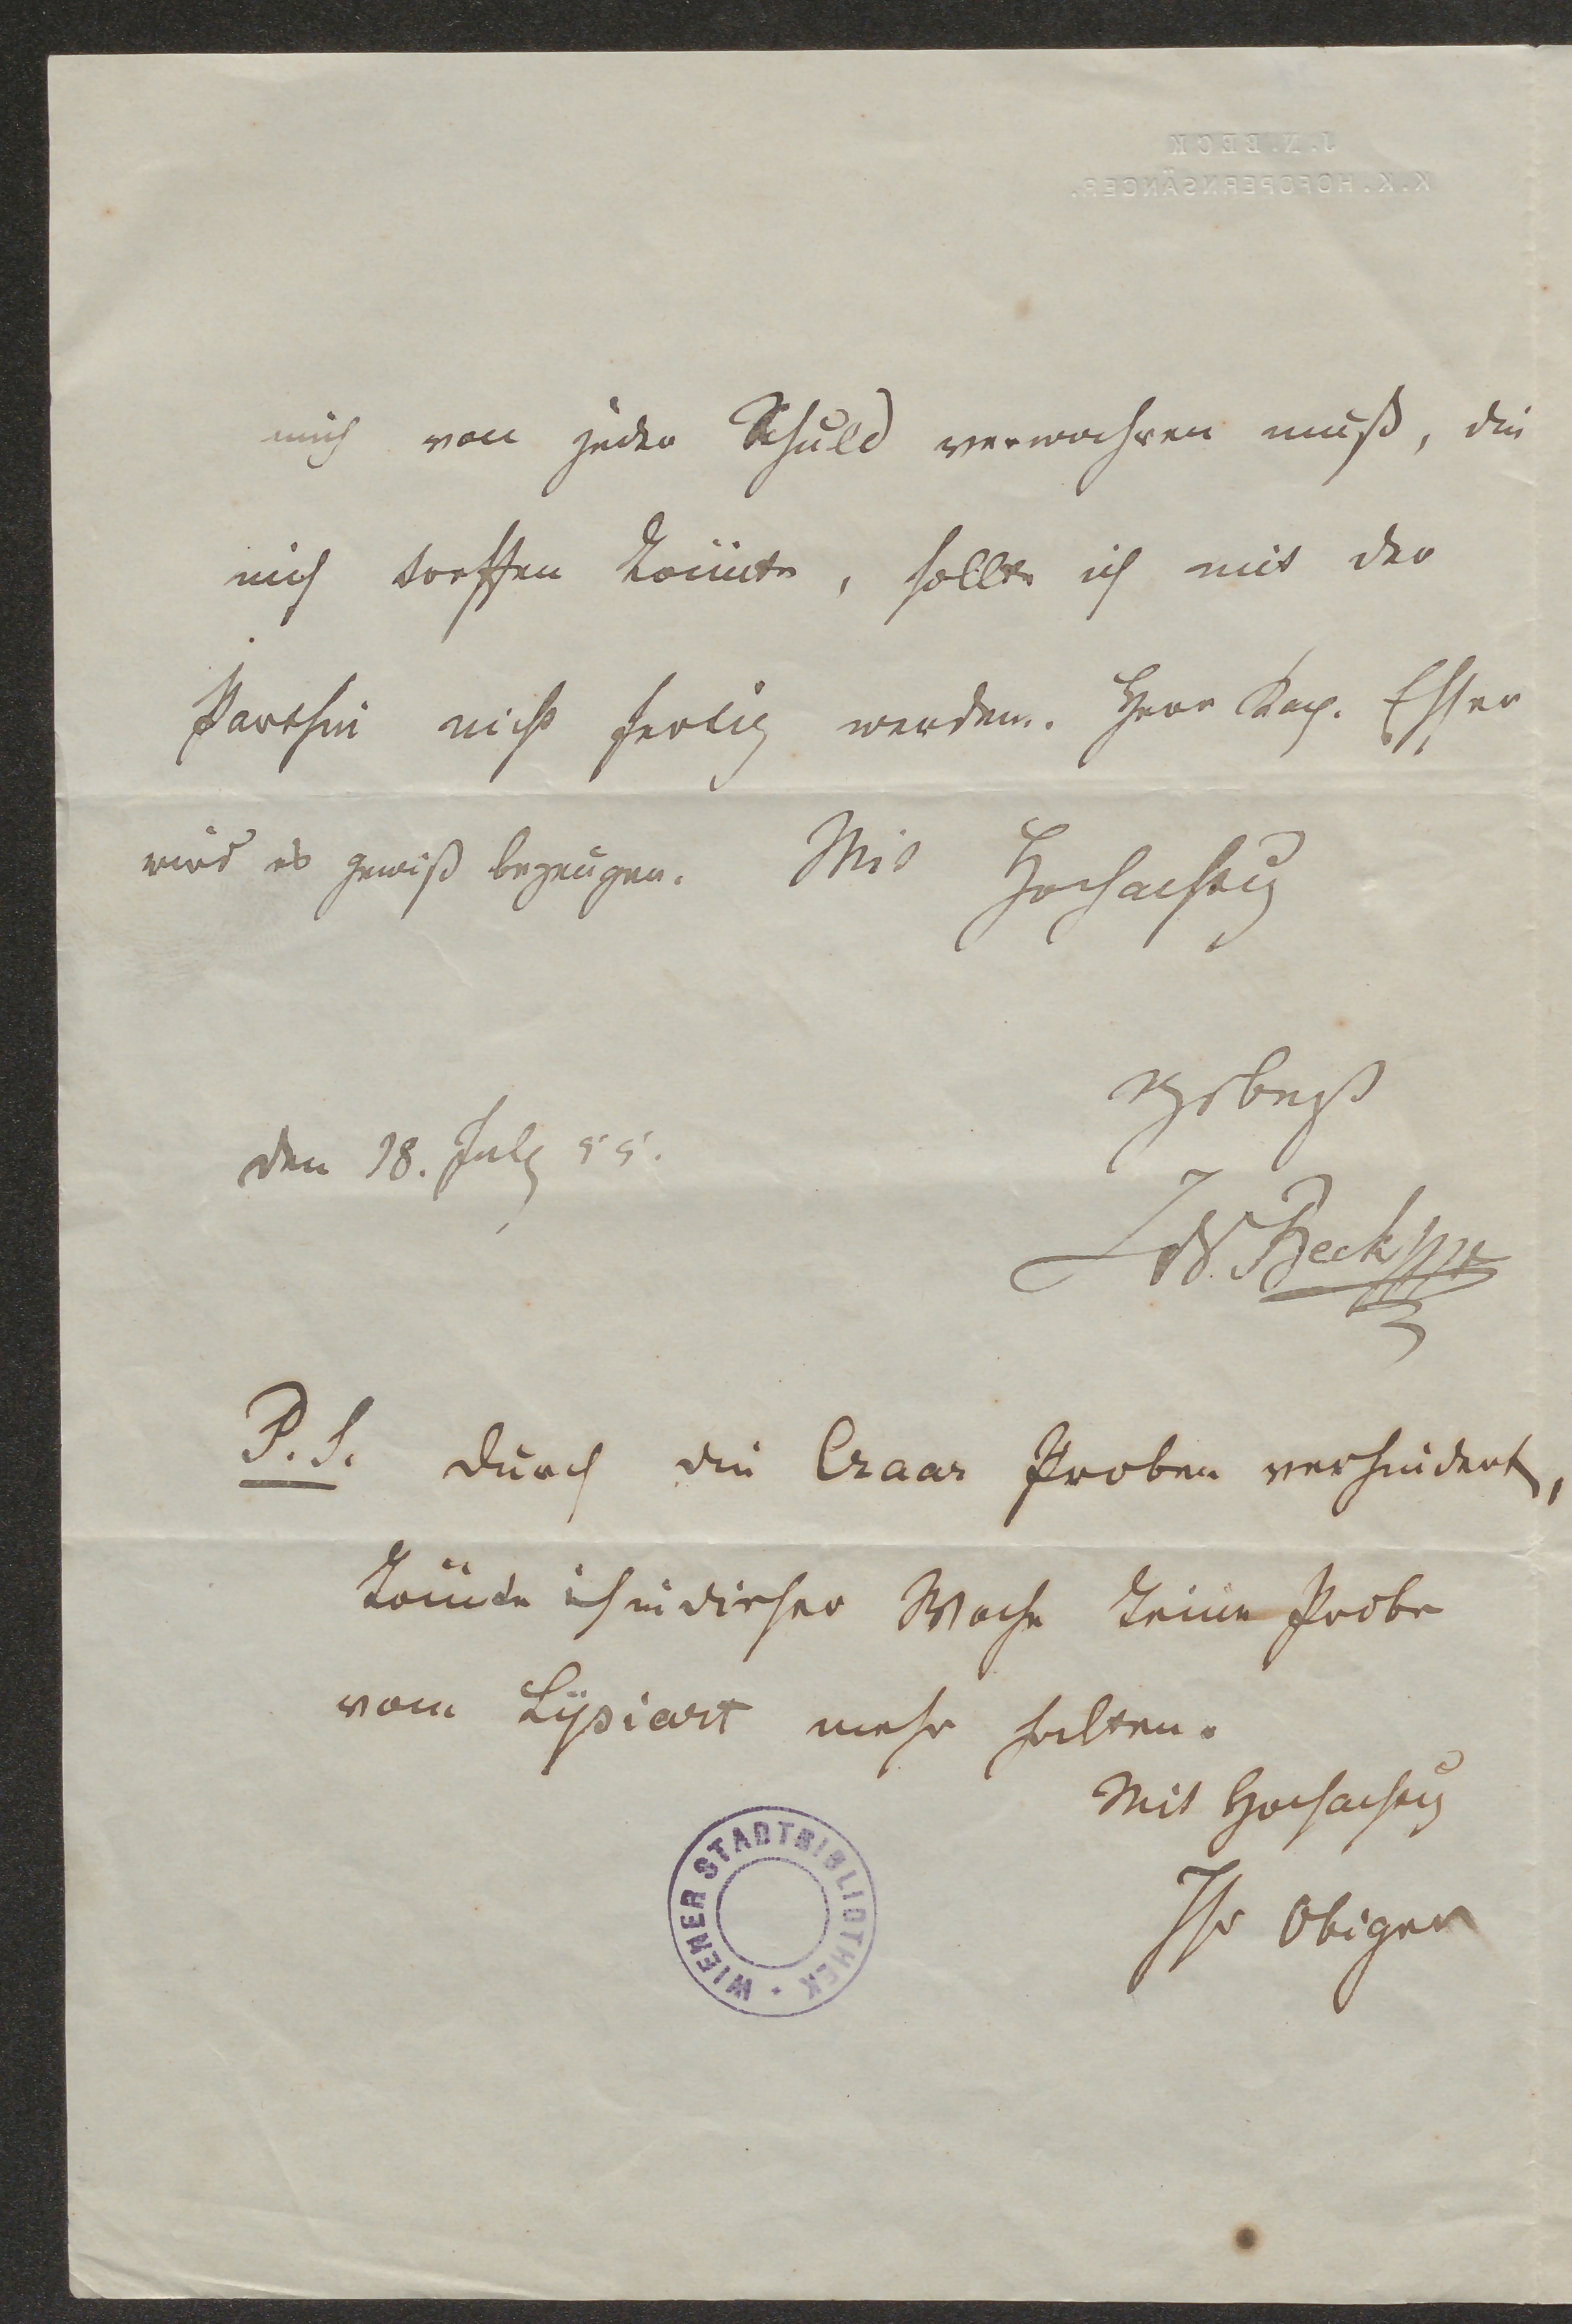 J. N. BECK
K. K. HOFOPERNSÄNGER.
mich von jeder Schuld verwahren muß, die
mich treffen könnte, sollte ich mit der
Parthie nicht fertig werden. Herr Kap. Esser
wird es gewiß bezeugen. Mit Hochachtung
ergebenst
den 18. July 55.
JN. Beck
P. S. Durch die Czaar Proben verhindert,
konnte ich in dieser Woche keine Probe
vom Lysiart mehr halten.
Mit Hochachtung
Ihr Obiger
WIENER STADTBIBLIOTHEK